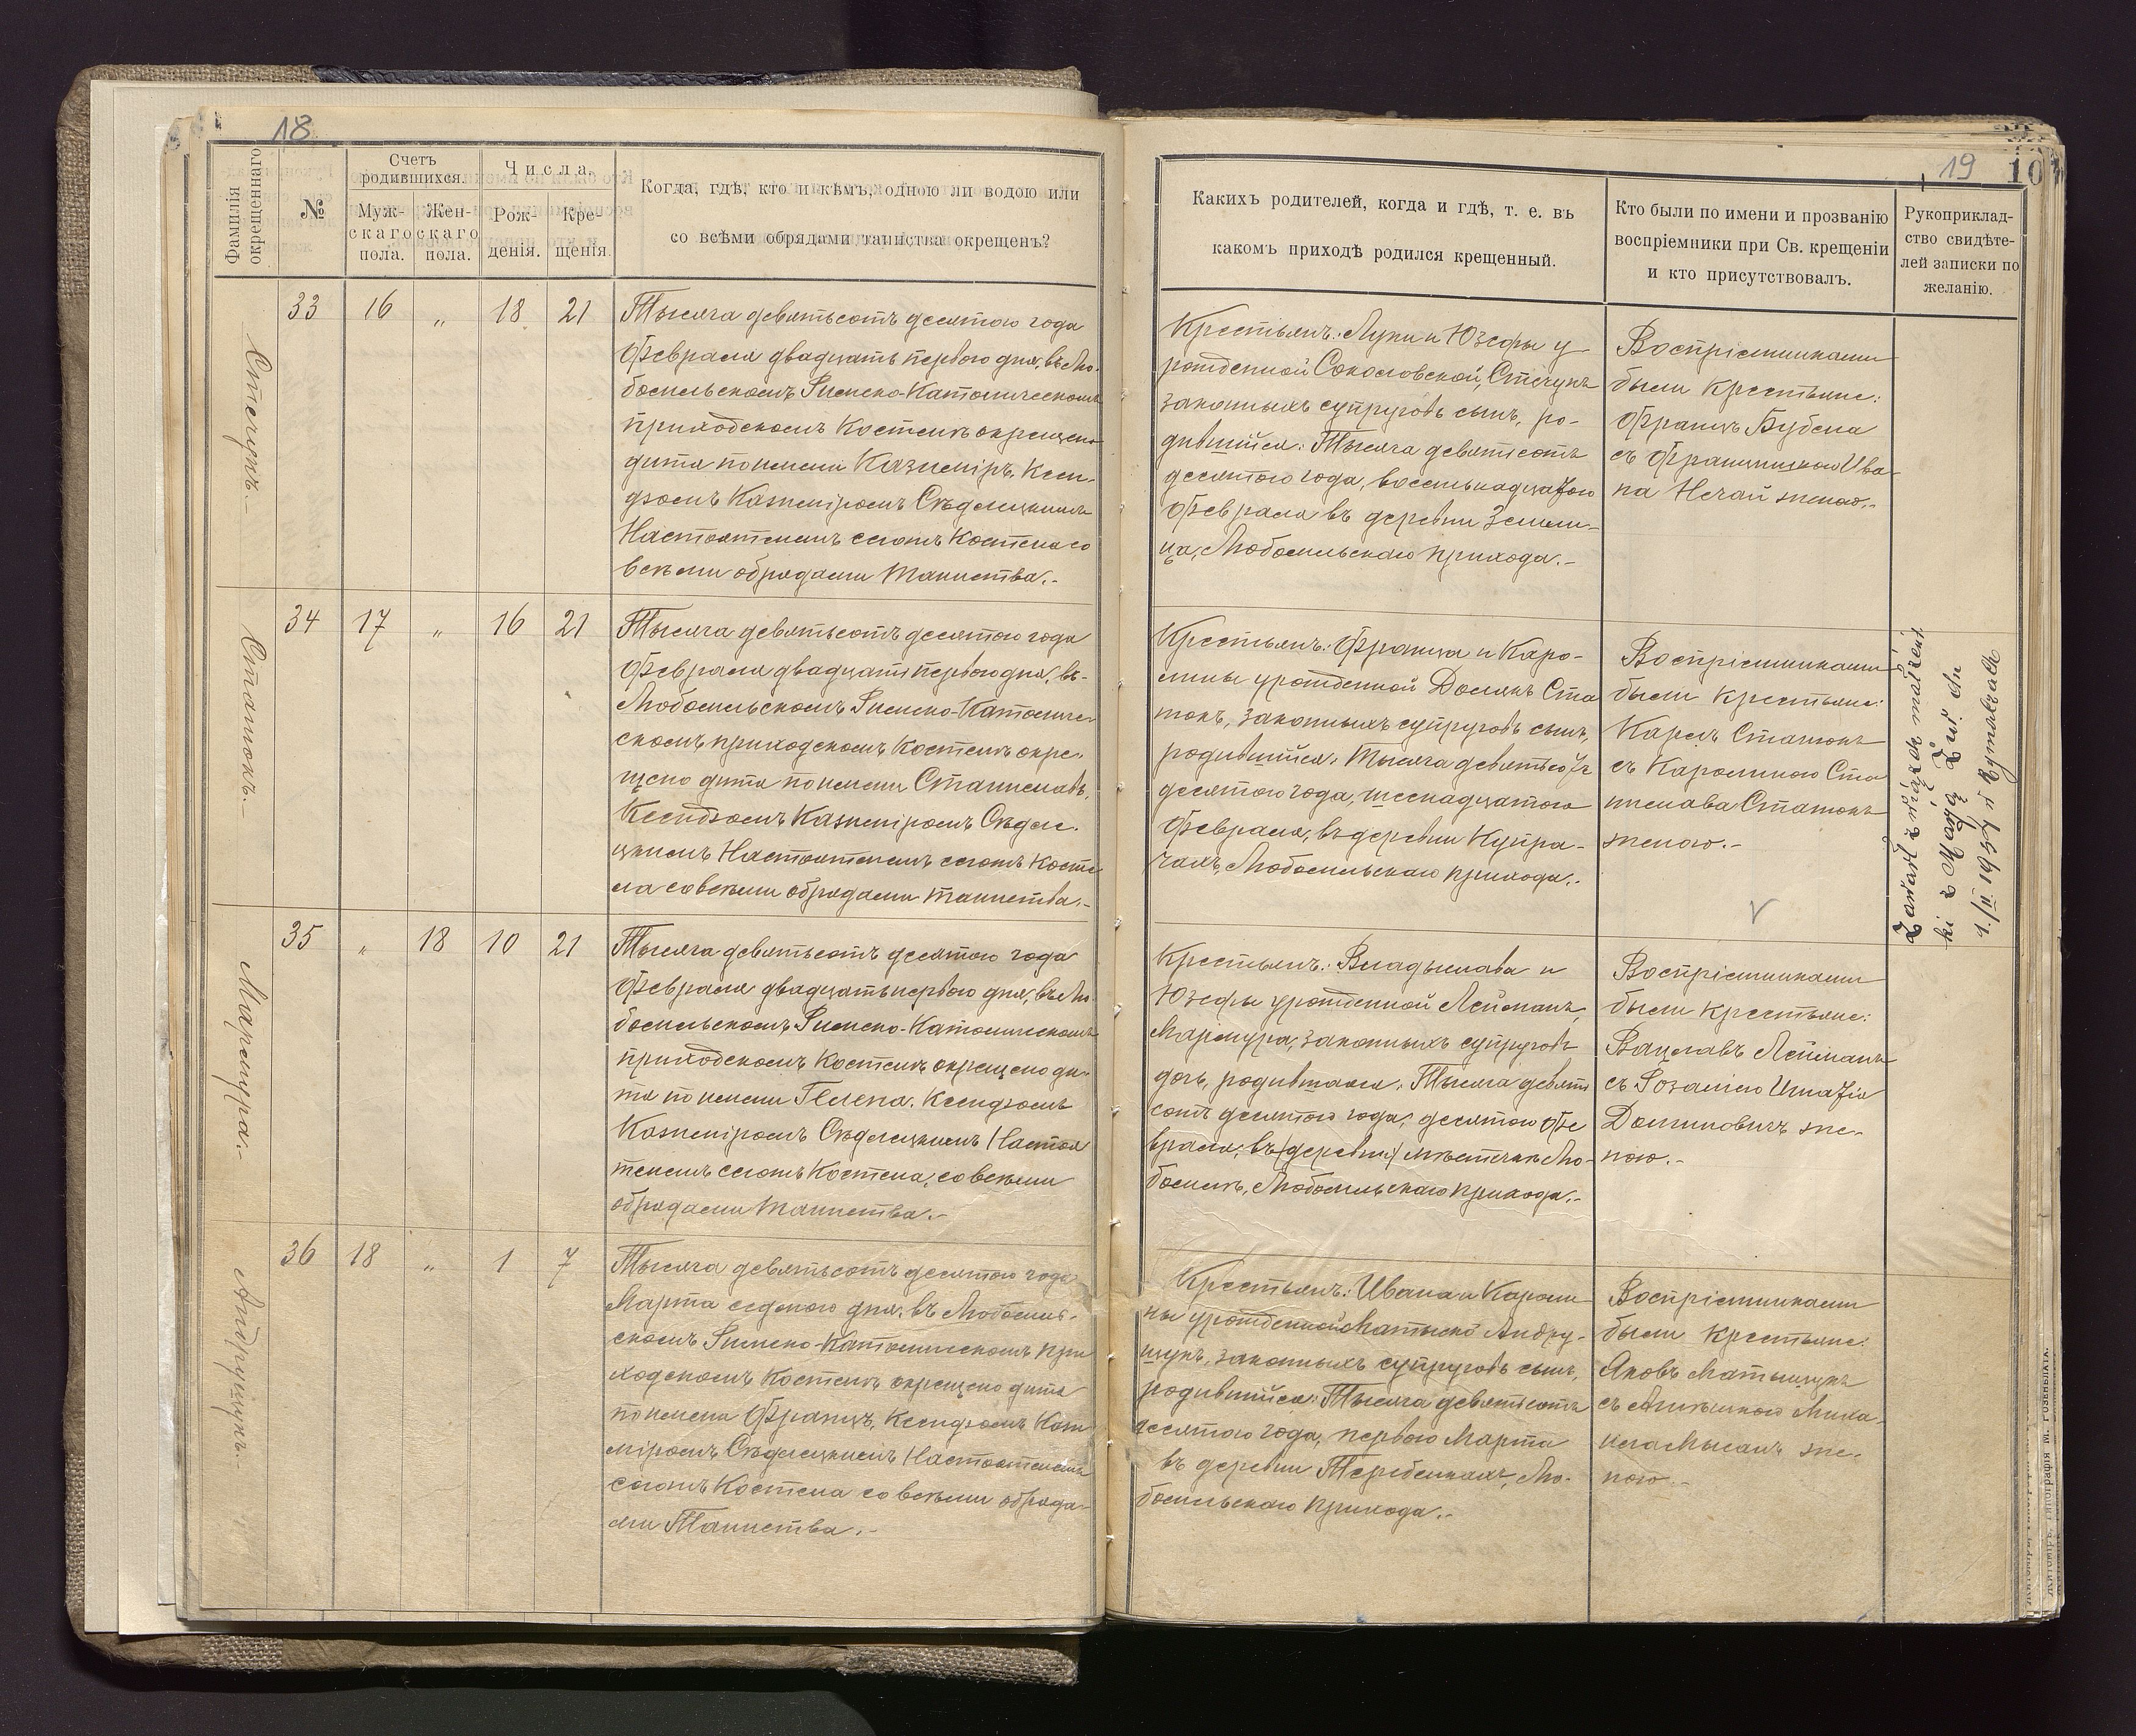 18
Фамилія окрещеннаго
№
Счетъ родившихся.
Муж-скаго пола.
Жен-скаго пола.
Числа.
Рож-денія.
Кре-щенія.
Когда, гдѣ, кто и кѣмъ, одною ли водою или
со всѣми обрядами таинства окрещенъ?
Стельмахъ.-
33 16 „ 18 21
Тысяча девятьсотъ десятого года
Февраля двадцать первого дня, въ Лю-
бомльскомъ Римско-Католическомъ
приходскомъ Костелѣ окрещено
дитя по имени Казиміръ, Ксен-
дзомъ Казиміромъ Сѣдлецкимъ
Настоятелемъ сегожъ Костела со
всѣми обрядами Таинства.-
Статокъ.-
34 17 „ 16 21
Тысяча девятьсотъ десятого года
Февраля двадцать первого дня, въ-
Любомльскомъ Римско-Католиче-
скомъ приходскомъ Костелѣ окре-
щено дитя по имени Станиславъ,
Ксендзомъ Казиміромъ Сѣдле-
цкимъ Настоятелемъ сегожъ Косте-
ла со всѣми обрядами Таинства.-
Мармура.-
35 „ 18 10 21
Тысяча девятьсотъ десятого года
Февраля двадцать первого дня, въ Лю-
бомльскомъ Римско-Католическомъ
приходскомъ Костелѣ окрещено ди-
тя по имени Гелена, Ксендзомъ
Казиміромъ Сѣдлецкимъ Настоя
телемъ сегожъ Костела, со всѣми
обрядами Таинства.-
Андрущукъ.-
36 18 „ 1 7
Тысяча девятьсотъ десятого года
Марта седьмого дня, въ Любомль-
скомъ Римско-Католическомъ при
ходскомъ Костелѣ окрещено дитя
по имени Францъ, Ксендзомъ Кази
міромъ Сѣдлецкимъ Настоятелемъ
сегожъ Костела со всѣми обряда-
ми Таинства.-
19
10
Какихъ родителей, когда и гдѣ, т. е. въ
какомъ приходѣ родился крещенный.
Кто были по имени и прозванію
воспріемники при Св. крещеніи
и кто присутствовалъ.
Рукоприклад-
ство свидѣте-
лей записки по
желанію.
Крестьянъ: Луки и Юзефы у
рожденной Соколовской,
законныхъ супруговъ сынъ, ро-
дившійся: Тысяча девятьсотъ
десятого года, восемьнадцатого
Февраля въ деревни Земли-
ца, Любомльскаго прихода.-
Воспріемниками
были Крестьяне:
Францъ
съ Францишкою Ива
на Нечай женою.-
Крестьянъ: Франца и Каро-
лины урожденной Домякъ Ста
токъ, законныхъ супруговъ сынъ,
родившійся: Тысяча девятьсотъ
десятого года, шеснадцатого
Февраля, въ деревни Купра-
чахъ, Любомльскаго прихода.-
Воспріемниками
были Крестьяне:
Кароль Статокъ
съ Каролиною Ста
нислава Статокъ
женою.-
V
Zawarł związek małżeń
ski z Marją
1/II 1957 r. Rymaczach
Крестьянъ: Владыслава и
Юзефы урожденной Лейманъ,
Мармура, законныхъ супруговъ
дочь, родившаяся: Тысяча девять
сотъ десятого года, десятого Фе
враля, въ (деревни) мѣстечкѣ Лю-
бомлѣ, Любомльскаго прихода.-
Воспріемниками
были Крестьяне:
Вацлавъ Лейманъ
съ Розаліею Игнатія
Доминовичъ же-
ною.-
Крестьянъ: Ивана и Кароли
ны урожденной Андру-
щукъ, законныхъ супруговъ сынъ,
родившійся: Тысяча девятьсотъ
десятого года, первого Марта
въ деревни Теребейкахъ, Лю-
бомльскаго прихода.-
Воспріемниками
были Крестьяне:
Яковъ
съ Миха-
ила же-
ною.-